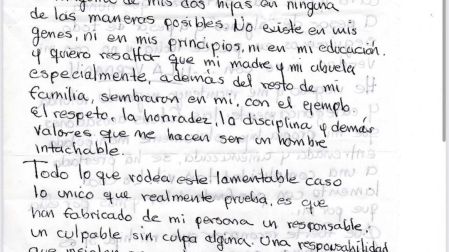 de mis dos hijas en ninguna
de las maneras posibles. No existe en mis
genes, ni en mis principios, ni en mi educación.
y quiero resaltar que mi madre y mi abuela
especialmente, además del resto de mi
familia, sembraron en mi, con el ejemplo.
El respeto, la honradez, la disciplina y demás
valores que me hacen ser un hombre
intachable.
Todo lo que rodea este lamentable caso
lo unico que realmente prueba, es que
han fabricado de mi persona un responsable.
un culpable sin culpa alguna. Una responsabilidad
que